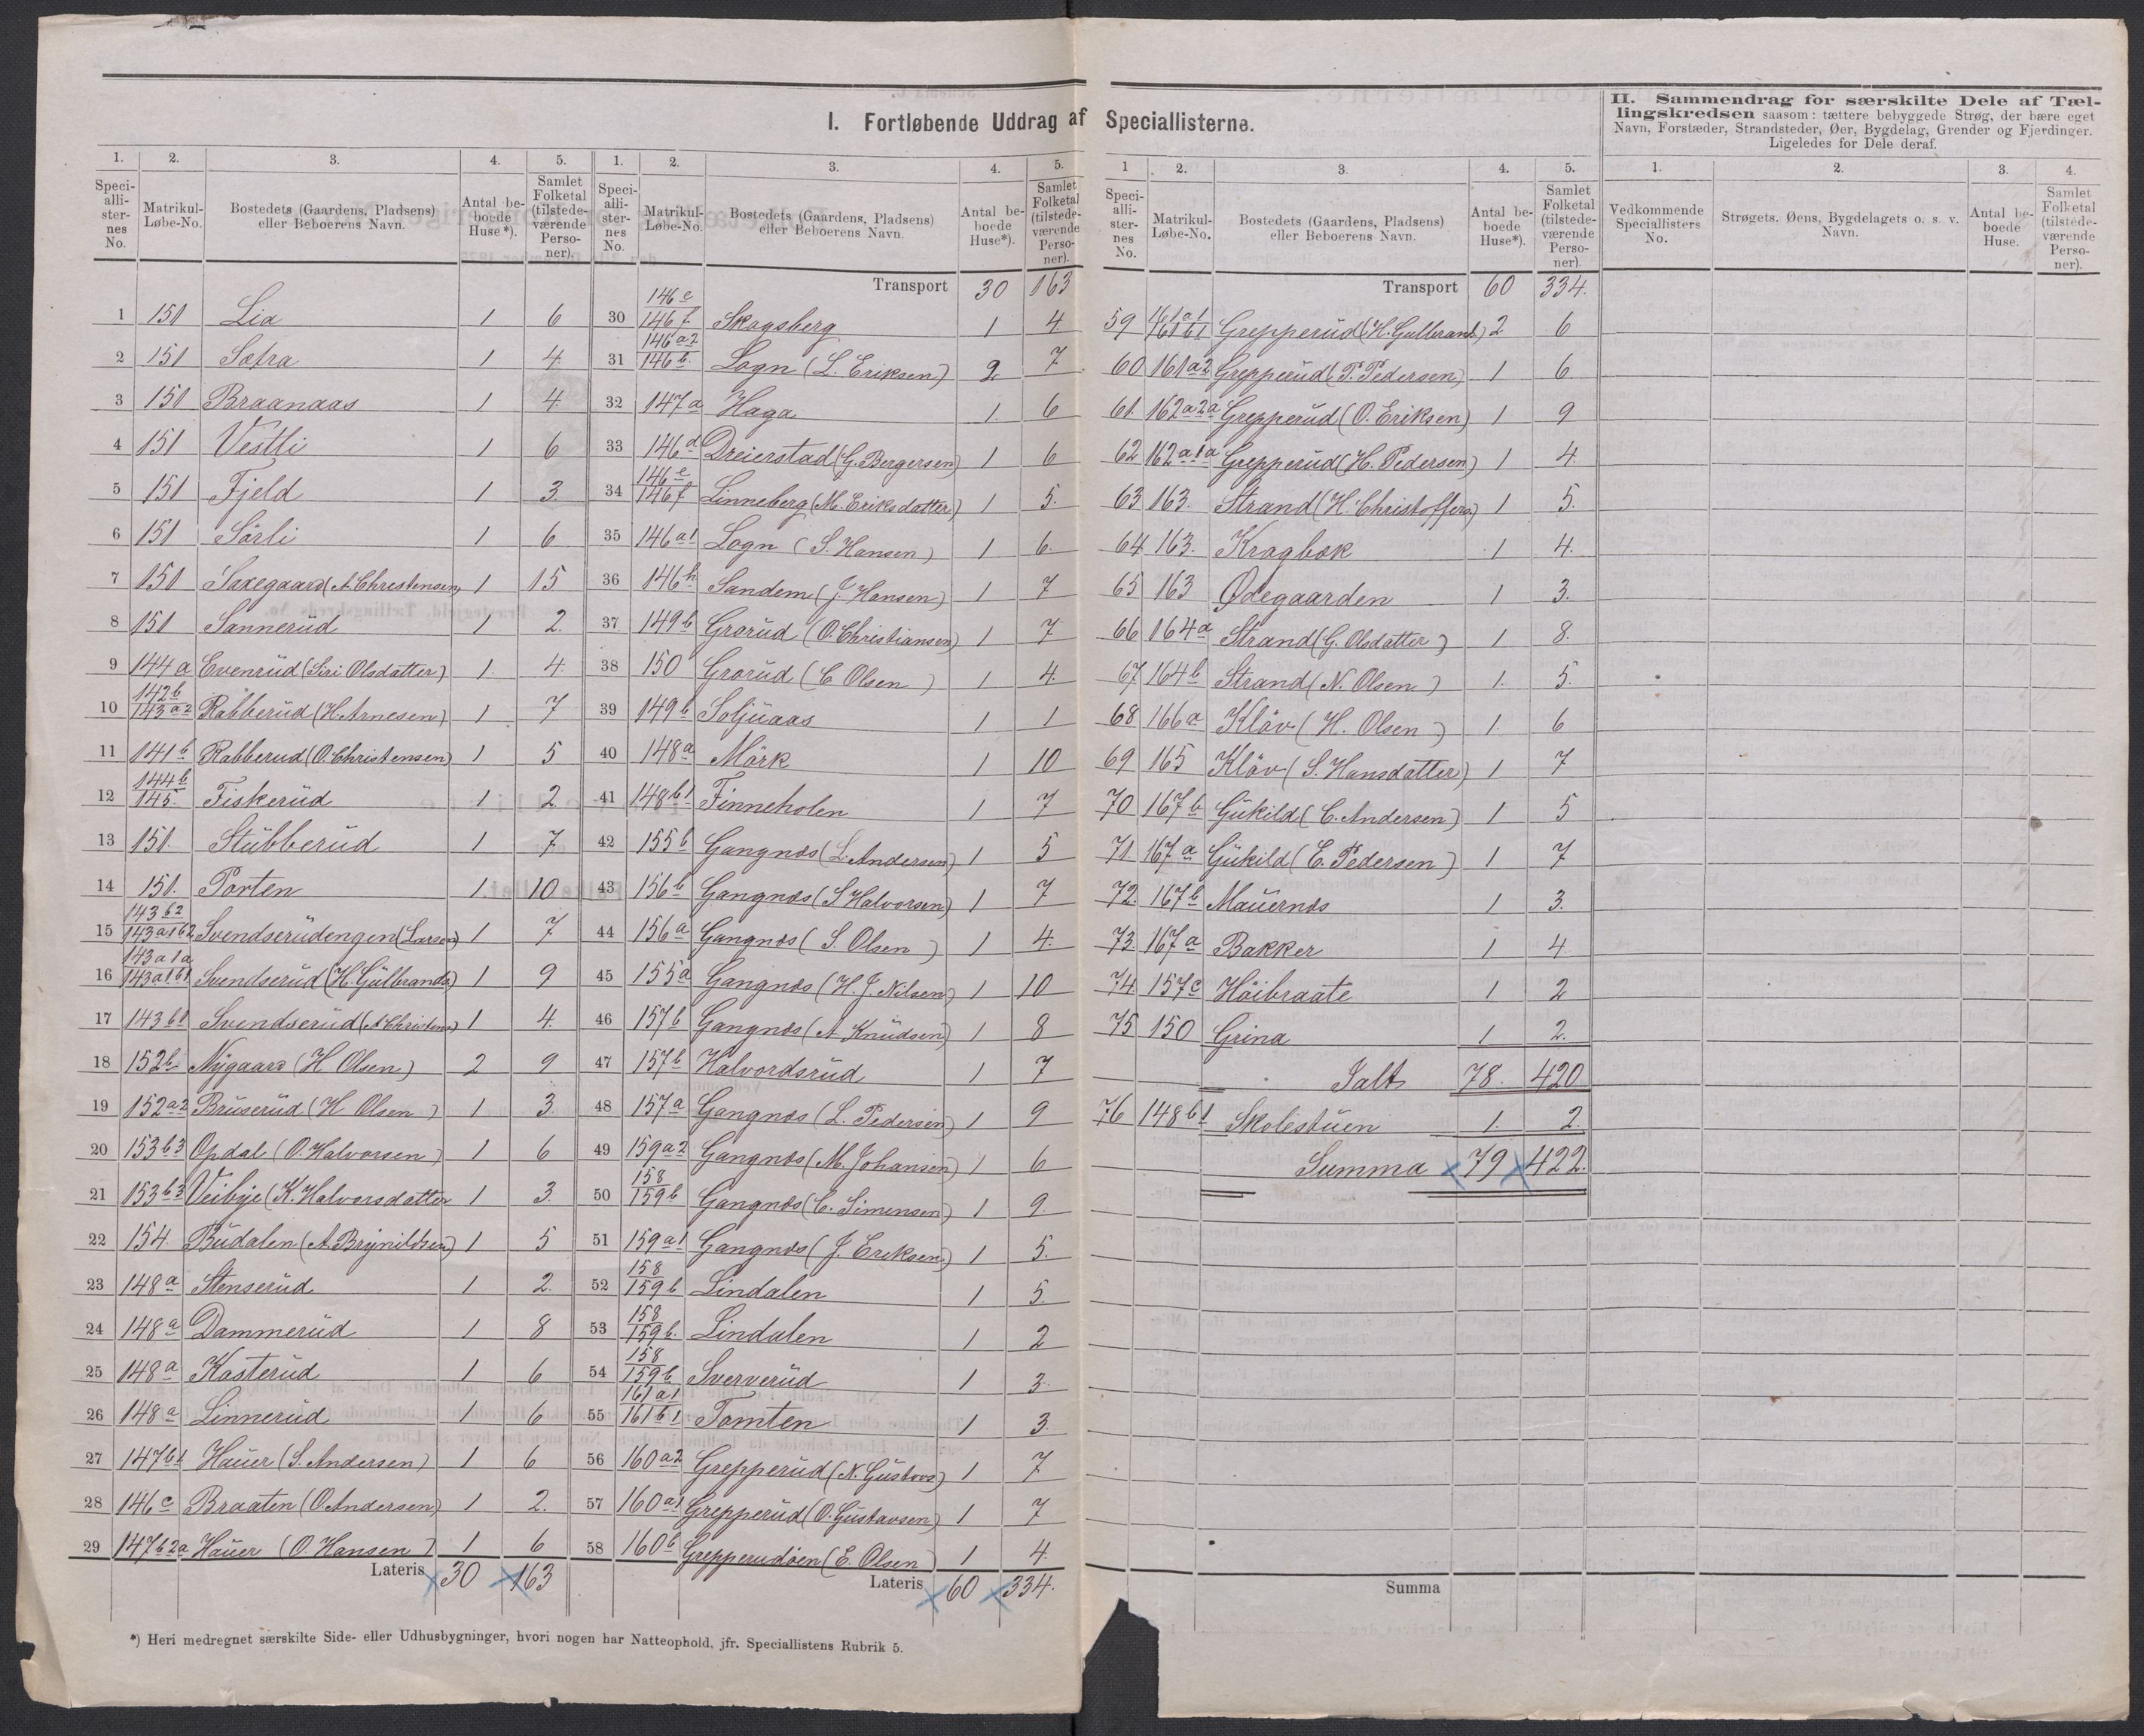 I. Fortløbende Uddrag af Speciallisterne.
II. Sammendrag for særskilte Dele af Tæl-
lingskredsen saasom: tættere bebyggede Strøg, der bære eget
Navn, Forstæder, Strandsteder, Øer, Bygdelag, Grender og Fjerdinger.
Ligeledes for Dele deraf.
1. 2. 3. 4. 5.
Speciallisternes No. Matrikul-Løbe-No. Bostedets (Gaardens, Pladsens) eller Beboerens Navn. Antal beboede Huse*). Samlet Folketal (tilstedeværende Personer).
1 151 Lia 1 6
2 151 Sætra 1 4.
3 151 Braanaas 1 4.
4 151 Vestli 1 6
5 151 Fjeld 1 3
6 151 Sörli 1 6
7 151 Saxegaard (A. Christensen) 1 15
8 151 Sannerud 1 2.
9 144a Evenrud (Siri Olsdatter) 1 4.
10 142b 143a2 Rabberud (H. Arnesen) 1 7
11 141b Rabberud (O. Christensen) 1 5
12 144b 145. Fiskerud 1 2
13 151. Stubberud 1 7
14 151. Porten 1. 10
15 143b2 143a1b2 Svendserudengen (Larsen) 1 7
16 143a1a 143a1b1 Svendserud (H. Gulbrands) 1 9
17 143b1 Svendserud (A Christens) 1 4.
18 152b Nygaard (H Olsen) 2 9
19 152a2 Bruserud (H Olsen) 1 3
20 153b3 Opdal (O. Halvorsen) 1 6
21 153b3 Veibye (K. Halvorsdatter 1 3.
22 154. Budalen (A. Brynildsen) 1 5
23 148a Stenserud 1 2.
24 148a Dammerud 1 8
25 148a Kasterud 1 6
26 148a Linnerud 1 6
27 147b1 Hauer (S. Andersen) 1 6
28 146c Braaten (O. Andersen) 1 2.
29 147b2a Hauer (O Hansen) 1 6
Lateris 30 163
*) Heri medregnet særskilte Side- eller Udhusbygninger, hvori nogen har Natteophold, jfr. Speciallistens Rubrik 5.
1. 2. 3. 4. 5.
Speciallisternes No. Matrikul-Løbe-No. Bostedets (Gaardens, Pladsens) eller Beboerens Navn. Antal beboede Huse*). Samlet Folketal (tilstedeværende Personer).
Transport 30 163
30 146e 146f Skogsberg 1 4
31 146a2 146b. Logn (L. Eriksen) 2 7
32 147a Haga 1. 6
33 146d Dreierstad (G. Bergersen) 1 6
34 146e 146f Linneberg (M. Eriksdatter) 1 5.
35 146a1 Logn (S. Hansen) 1 6.
36 146h Sandem (J Hansen) 1 7
37 149b Grorud (O. Christiansen) 1 7
38 150 Grorud (C Olsen) 1 4.
39 149b Soljuaas 1 1
40 148a Mörk 1 10
41 148b1 Finneholen 1 7
42 155b Gangnæs (L. Andersen) 1 5
43 156b Gangnæs (S Halvorsen) 1 7
44 156a Gangnæs (S. Olsen) 1 4.
45 155a Gangnæs (H. J. Nilsen) 1 10
46 157b Gangnæs (A Knudsen) 1 8
47 157b Halvordsrud 1 7
48 157a Gangnæs (L. Pedersen) 1 9
49 159a2 Gangnæs (M. Johansen) 1 6
50 158 159b Gangnæs (C. Simensen) 1 9.
51 159a1 Gangnæs (J. Eriksen) 1 5.
52 158 159b Lindalen 1 5.
53 158 159b. Lindalen 1 2
54 158 159b Sververud 1 3.
55 161a1 161b1 Tomten 1 3.
56 160a2 Grepperud (N. Gustavs) 1 7
57 160a1 Grepperud (O. Gustavsen) 1 7
58 160b Grepperudöen (E. Olsen) 1 4.
Lateris 60 334.
1 2. 3. 4. 5.
Speciallisternes No. Matrikul-Løbe-No. Bostedets (Gaardens, Pladsens) eller Beboerens Navn. Antal beboede Huse*). Samlet Folketal (tilstedeværende Personer).
Transport 60 334.
59 161a1 161b1 Grepperud (H. Gulbrands) 2 6
60 161a2 Grepperud (P. Pedersen) 1 6
61. 162a2a Grepperud (O. Eriksen) 1 9
62 162a1a Grepperud (H. Pedersen) 1 4.
63 163. Strand (H. Christoffers) 1 5.
64 163. Kragbøk 1 4.
65 163 Ødegaarden 1 3.
66 164a Strand (G. Olsdatter) 1 8.
67. 164b Strand (N. Olsen) 1. 5.
68 166a Kløv (H. Olsen) 1. 6
69 165 Kløv (S. Hansdatter) 1 7
70 167b Gukild (C. Andersen) 1 5
71. 167a Gukild (E. Pedersen) 1 7
72. 167b Mauernæs 1 3.
73 167a Bakker 1 4
74 157c Höibraate 1 2
75 150 Grina 1 2.
Ialt 78. 420
76 148b1 Skolestuen 1. 2.
Summa 79 422.
Summa
1. 2. 3. 4.
Vedkommende Speciallisters No. Strøgets. Øens, Bygdelagets o. s. v. Navn. Antal beboede Huse. Samlet Folketal (tilstedeværende Personer).